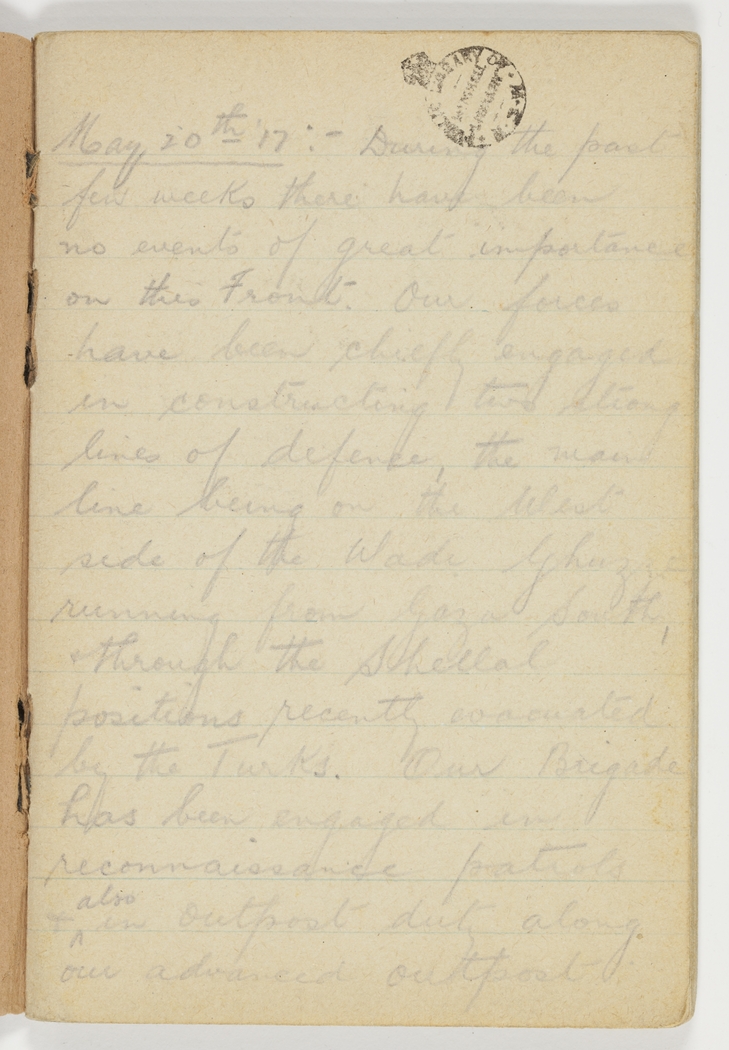 PUBLIC LIBRARY OF N.S.W.
May 20th 17 :- During the past
few weeks there have been
no events of great importance
on this Front. Our forces
have been chiefly engaged
in constructing two strong
lines of defence, the main
line being on the West
side of the Wadi Ghuz
running from Gaza South,
& through the Shellal
positions recently evacuated
by the Turks. Our Brigade
has been engaged in
reconnaissance patrols
& also in outpost duty along
our advanced outpost